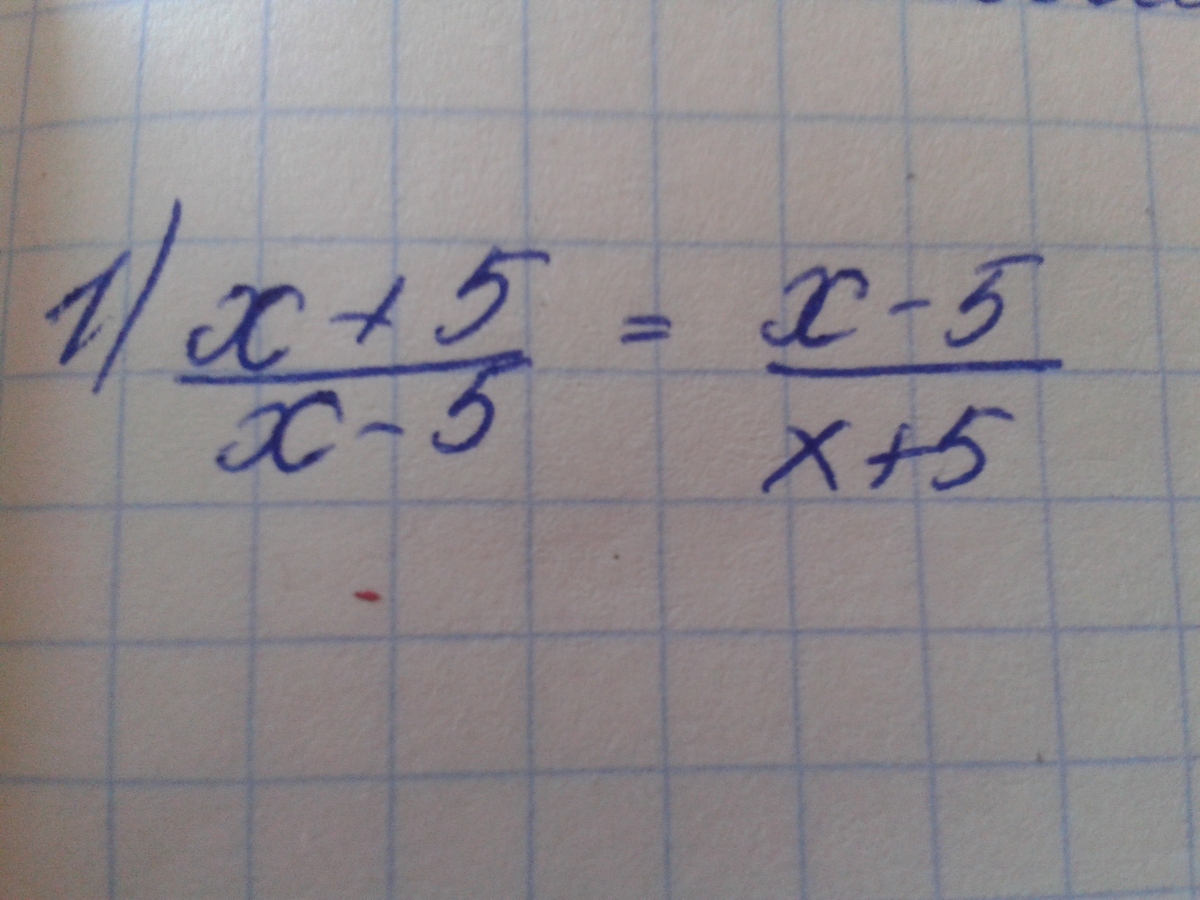 1) x + 5 / x - 5 = x - 5 / x + 5